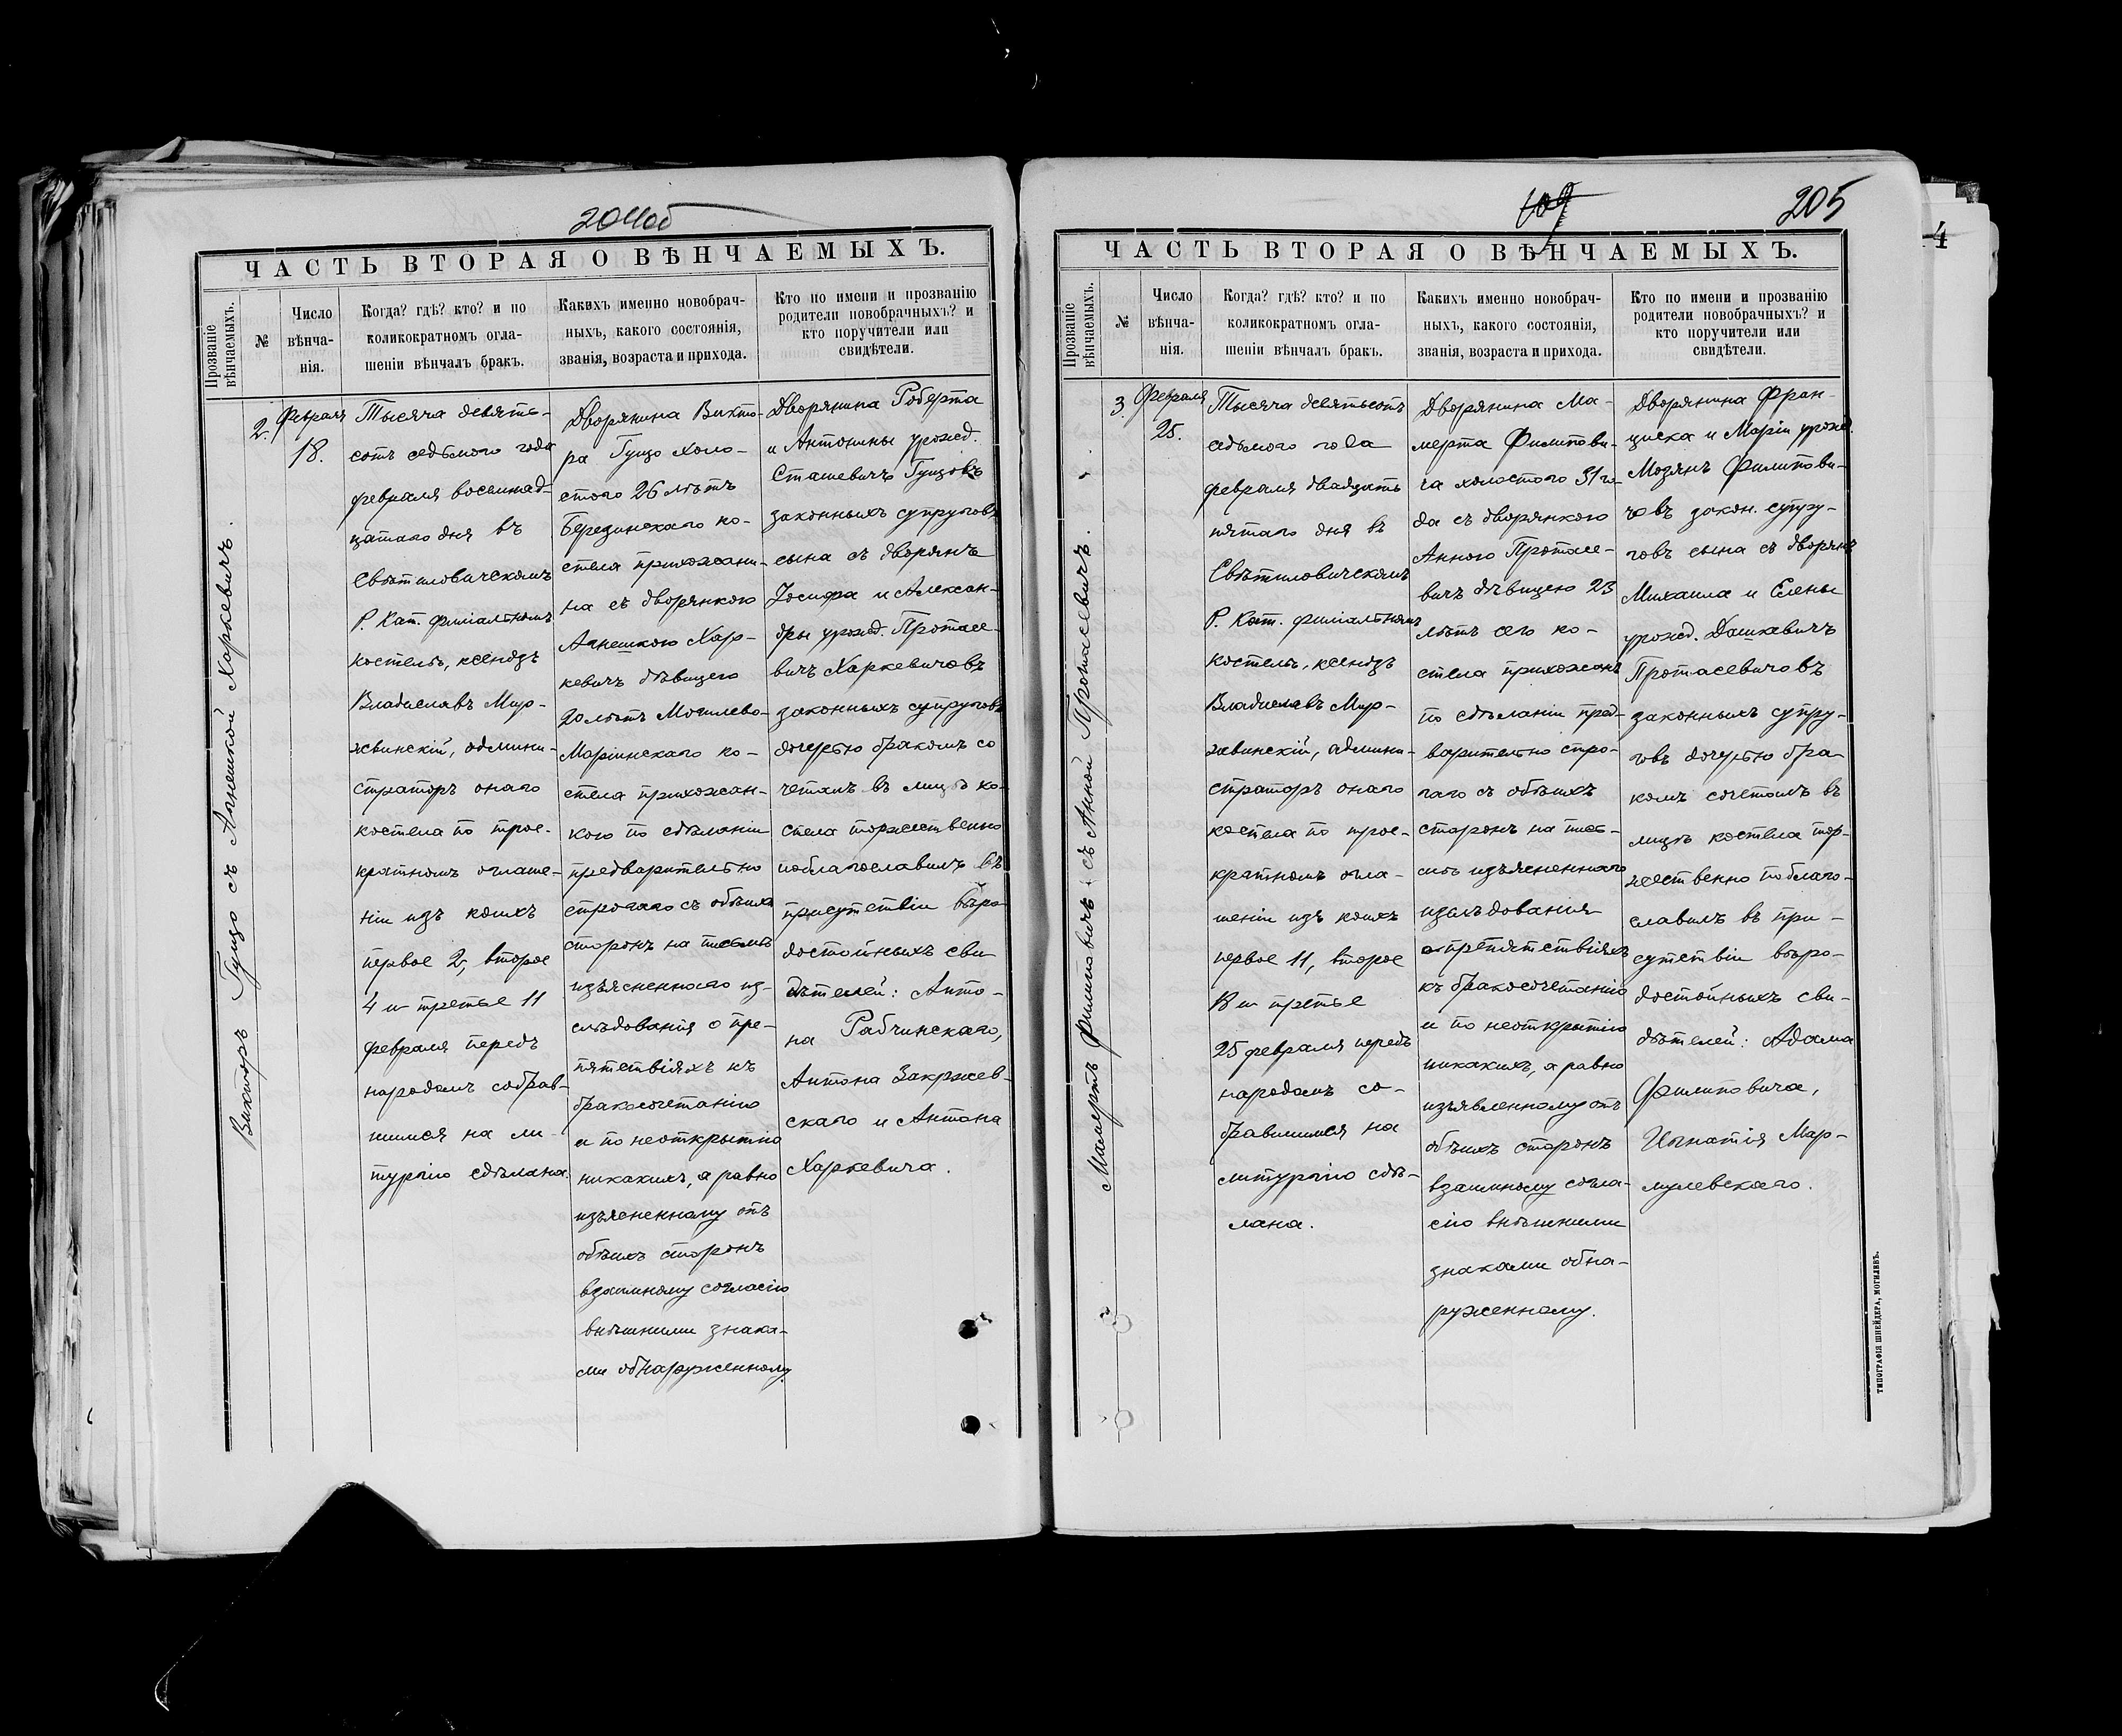 204об
ЧАСТЬ ВТОРАЯ О ВѢНЧАЕМЫХЪ.
Прозваніе
вѣнчаемыхъ.
№
Число
вѣнча-
нія.
Когда? гдѣ? кто? и по
коликократномъ огла-
шеніи вѣнчалъ бракъ.
Какихъ именно новобрач-
ныхъ, какого состоянія,
званія, возраста и прихода.
Кто по имени и прозванію
родители новобрачныхъ? и
кто поручители или
свидѣтели.
Викторъ Гуцо съ Агнешкой Харкевичъ.
2.
Февраля
18.
Тысяча девять-
сотъ седьмого года
февраля восемнад-
цатаго дня въ
Свѣтиловическомъ
Р. Кат. филіальномъ
костелѣ, ксендзъ
Владиславъ Мир-
жвинскій, админи-
страторъ онаго
костела по трое-
кратномъ оглаше-
ніи изъ коихъ
первое 2, второе
4 и третье 11
февраля передъ
народомъ собрав-
шимся на ли-
тургію сдѣлана.
Дворянина Викто-
ра Гуцо холо-
стого 26 лѣтъ
Березинскаго ко-
стела прихожани-
на съ дворянкою
Агнешкою Хар-
кевичъ дѣвицею
20 лѣтъ Могилево-
Маріинскаго ко-
стела прихожан-
кою по сдѣланіи
предварительно
строгаго съ обѣихъ
сторонъ на письмѣ
изъясненнаго из-
слѣдованія о пре-
пятствіяхъ къ
бракосочетанію
и по неоткрытію
никакихъ, а равно
изъясненному отъ
обѣихъ сторонъ
взаимному согласію
внѣшними знака-
ми обнаруженному.
Дворянина Роберта
и Антонины урожд.
Сташевичъ Гуцовъ
законныхъ супруговъ
сына съ дворянъ
Іосифа и Алексан-
дры урожд. Протасе-
вичъ Харкевичовъ
законныхъ супруговъ
дочерью бракомъ со
четалъ въ лицѣ ко-
стела торжественно
поблагославилъ въ
присутствіи вѣро-
достойныхъ сви
дѣтелей: Анто-
на Рабчинскаго,
Антона Закржев-
скаго и Антона
Харкевича.
109
205
ЧАСТЬ ВТОРАЯ О ВѢНЧАЕМЫХЪ.
Прозваніе
вѣнчаемыхъ.
№
Число
вѣнча-
нія.
Когда? гдѣ? кто? и по
коликократномъ огла-
шеніи вѣнчалъ бракъ.
Какихъ именно новобрач-
ныхъ, какого состоянія,
званія, возраста и прихода.
Кто по имени и прозванію
родители новобрачныхъ? и
кто поручители или
свидѣтели.
Мамертъ Филиповичъ съ Анной Протасевичъ.
3.
Февраля
25.
Тысяча девятьсотъ
седьмого года
февраля двадцать
пятаго дня въ
Свѣтиловическомъ
Р. Кат. филіальномъ
костелѣ, ксендзъ
Владиславъ Мир-
жвинскій, админи-
страторъ онаго
костела по трое-
кратномъ огла-
шеніи изъ коихъ
первое 11, второе
18 и третье
25 февраля передъ
народомъ со-
бравшимся на
литургію сдѣ-
лана.
Дворянина Ма-
мерта Филипови-
ча холостого 31 го-
да съ дворянкою
Анною Протасе-
вичъ дѣвицею 23
лѣтъ сего ко-
стела прихожанъ
по сдѣланіи пред-
варительно стро-
гаго съ обѣихъ
сторонъ на пись-
мѣ изъясненнаго
изслѣдованія
о препятствіяхъ
къ бракосочетанію
и по неоткрытію
никакихъ, а равно
изъявленному отъ
обѣихъ сторонъ
взаимному согла-
сію внѣшними
знаками обна-
руженному.
Дворянина Фран-
циска и Маріи урожд.
Мозянъ Филипови-
човъ закон. супру-
говъ сына съ дворянъ
Михаила и Елены
урожд. Дашкевичъ
Протасевичовъ
законныхъ супру-
говъ дочерью бра
комъ сочеталъ въ
лицѣ костела тор-
жественно поблаго-
славилъ въ при-
сутствіи вѣро-
достойныхъ сви-
дѣтелей: Адама
Филиповича,
Игнатія Мар-
мулевскаго.
ТИПОГРАФІЯ ШНЕЙДЕРА, МОГИЛЕВЪ.
4